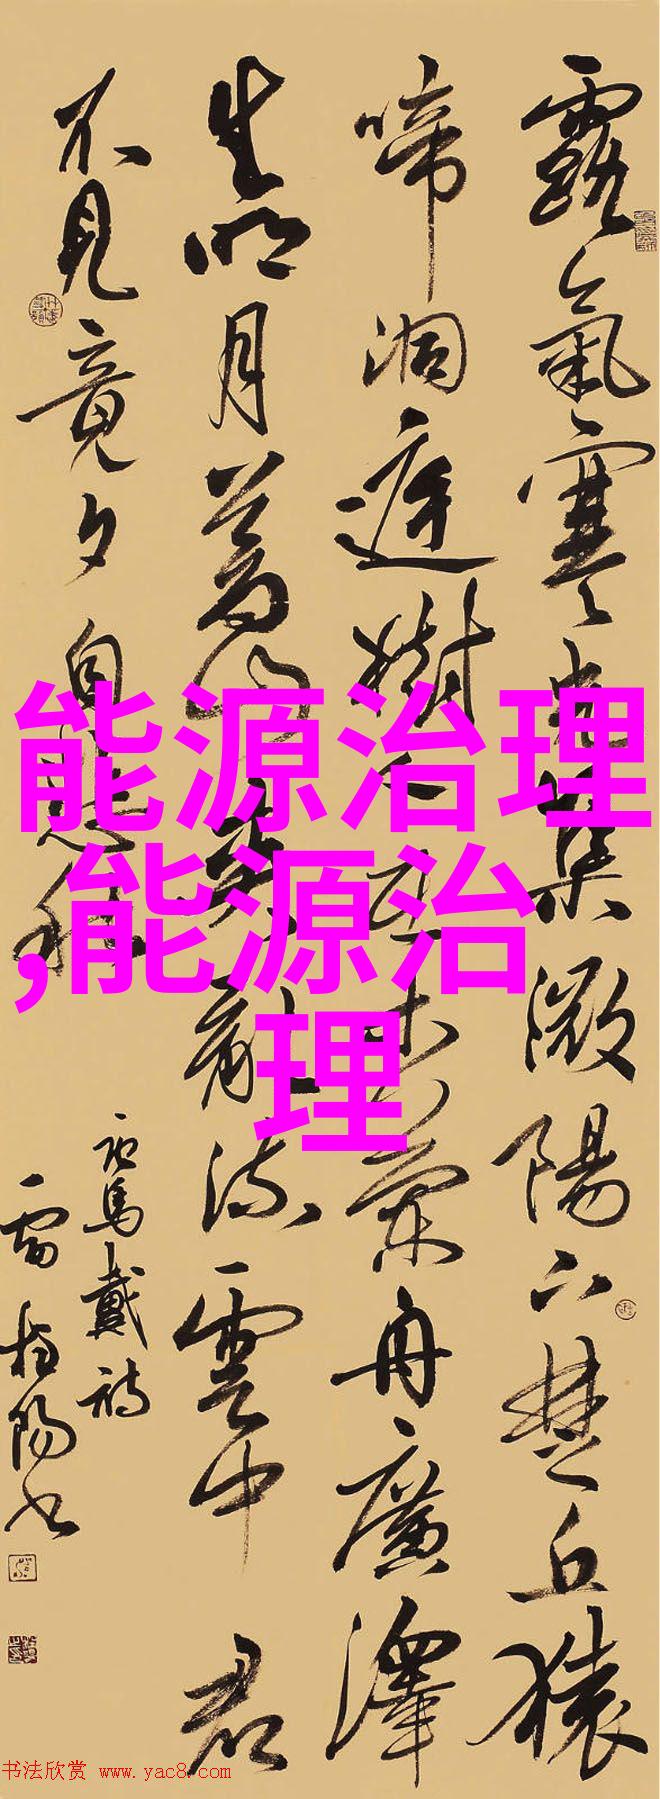 露氣寒光集微陽下楚丘猿
啼洞庭樹人在木蘭舟廣澤
生明月蒼山夾亂流雲中君
不見竟夕自悲秋
唐馬戴詩
雷陽书
能源治理
,能源治
理
书法欣赏 www.yac8.com